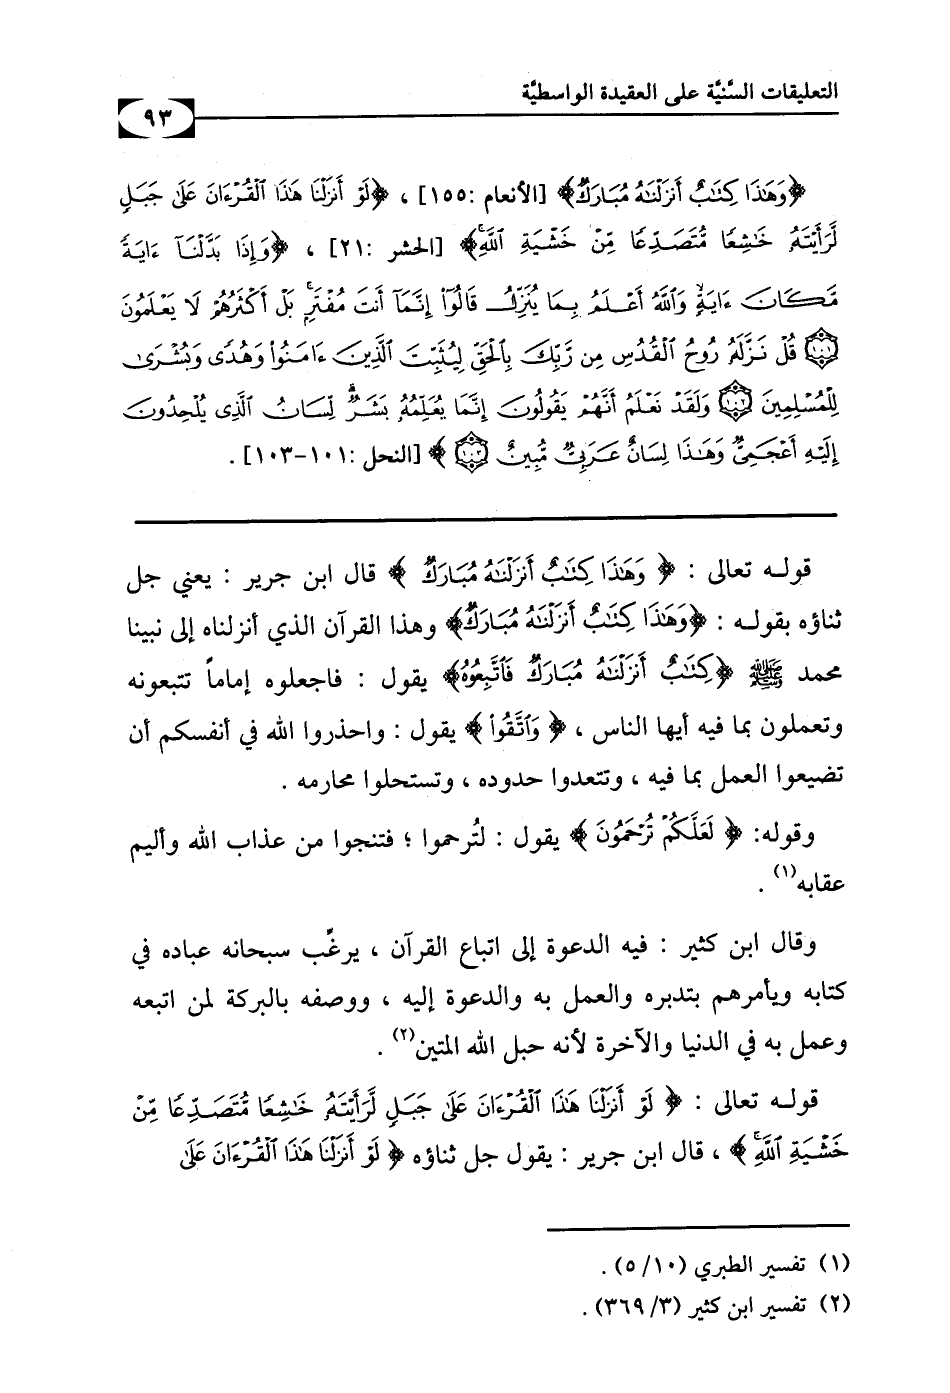 التعليقات السَّنيَّة على العقيدة الواسطيَّة
٩٣
﴿وَهَٰذَا كِتَٰبٌ أَنزَلْنَٰهُ مُبَارَكٌ﴾ [الأنعام :١٥٥] ، ﴿لَوْ أَنزَلْنَا هَٰذَا ٱلْقُرْءَانَ عَلَىٰ جَبَلٍ
لَّرَأَيْتَهُۥ خَٰشِعًا مُّتَصَدِّعًا مِّنْ خَشْيَةِ ٱللَّهِ﴾ [الحشر :٢١] ، ﴿وَإِذَا بَدَّلْنَآ ءَايَةً
مَّكَانَ ءَايَةٍ وَٱللَّهُ أَعْلَمُ بِمَا يُنَزِّلُ قَالُوٓا۟ إِنَّمَآ أَنتَ مُفْتَرٍۭ بَلْ أَكْثَرُهُمْ لَا يَعْلَمُونَ
﴿١٠١﴾ قُلْ نَزَّلَهُۥ رُوحُ ٱلْقُدُسِ مِن رَّبِّكَ بِٱلْحَقِّ لِيُثَبِّتَ ٱلَّذِينَ ءَامَنُوا۟ وَهُدًى وَبُشْرَىٰ
لِلْمُسْلِمِينَ ﴿١٠٢﴾ وَلَقَدْ نَعْلَمُ أَنَّهُمْ يَقُولُونَ إِنَّمَا يُعَلِّمُهُۥ بَشَرٌ لِّسَانُ ٱلَّذِى يُلْحِدُونَ
إِلَيْهِ أَعْجَمِىٌّ وَهَٰذَا لِسَانٌ عَرَبِىٌّ مُّبِينٌ ﴿١٠٣﴾ ﴾ [النحل :١٠١-١٠٣] .
قولـه تعالى : ﴿ وَهَٰذَا كِتَٰبٌ أَنزَلْنَٰهُ مُبَارَكٌ ﴾ قال ابن جرير : يعني جل
ثناؤه بقولـه : ﴿وَهَٰذَا كِتَٰبٌ أَنزَلْنَٰهُ مُبَارَكٌ﴾ وهذا القرآن الذي أنزلناه إلى نبينا
محمد ﷺ ﴿كِتَٰبٌ أَنزَلْنَٰهُ مُبَارَكٌ فَٱتَّبِعُوهُ﴾ يقول : فاجعلوه إماماً تتبعونه
وتعملون بما فيه أيها الناس ، ﴿ وَٱتَّقُوا۟ ﴾ يقول : واحذروا الله في أنفسكم أن
تضيعوا العمل بما فيه ، وتتعدوا حدوده ، وتستحلوا محارمه .
وقوله: ﴿ لَعَلَّكُمْ تُرْحَمُونَ ﴾ يقول : لتُرحموا ؛ فتنجوا من عذاب الله وأليم
عقابه(١) .
وقال ابن كثير : فيه الدعوة إلى اتباع القرآن ، يرغِّب سبحانه عباده في
كتابه ويأمرهم بتدبره والعمل به والدعوة إليه ، ووصفه بالبركة لمن اتبعه
وعمل به في الدنيا والآخرة لأنه حبل الله المتين(٢) .
قولـه تعالى : ﴿ لَوْ أَنزَلْنَا هَٰذَا ٱلْقُرْءَانَ عَلَىٰ جَبَلٍ لَّرَأَيْتَهُۥ خَٰشِعًا مُّتَصَدِّعًا مِّنْ
خَشْيَةِ ٱللَّهِ ﴾ ، قال ابن جرير : يقول جل ثناؤه ﴿ لَوْ أَنزَلْنَا هَٰذَا ٱلْقُرْءَانَ عَلَىٰ
(١) تفسير الطبري (١٠/ ٥) .
(٢) تفسير ابن كثير (٣/ ٣٦٩) .